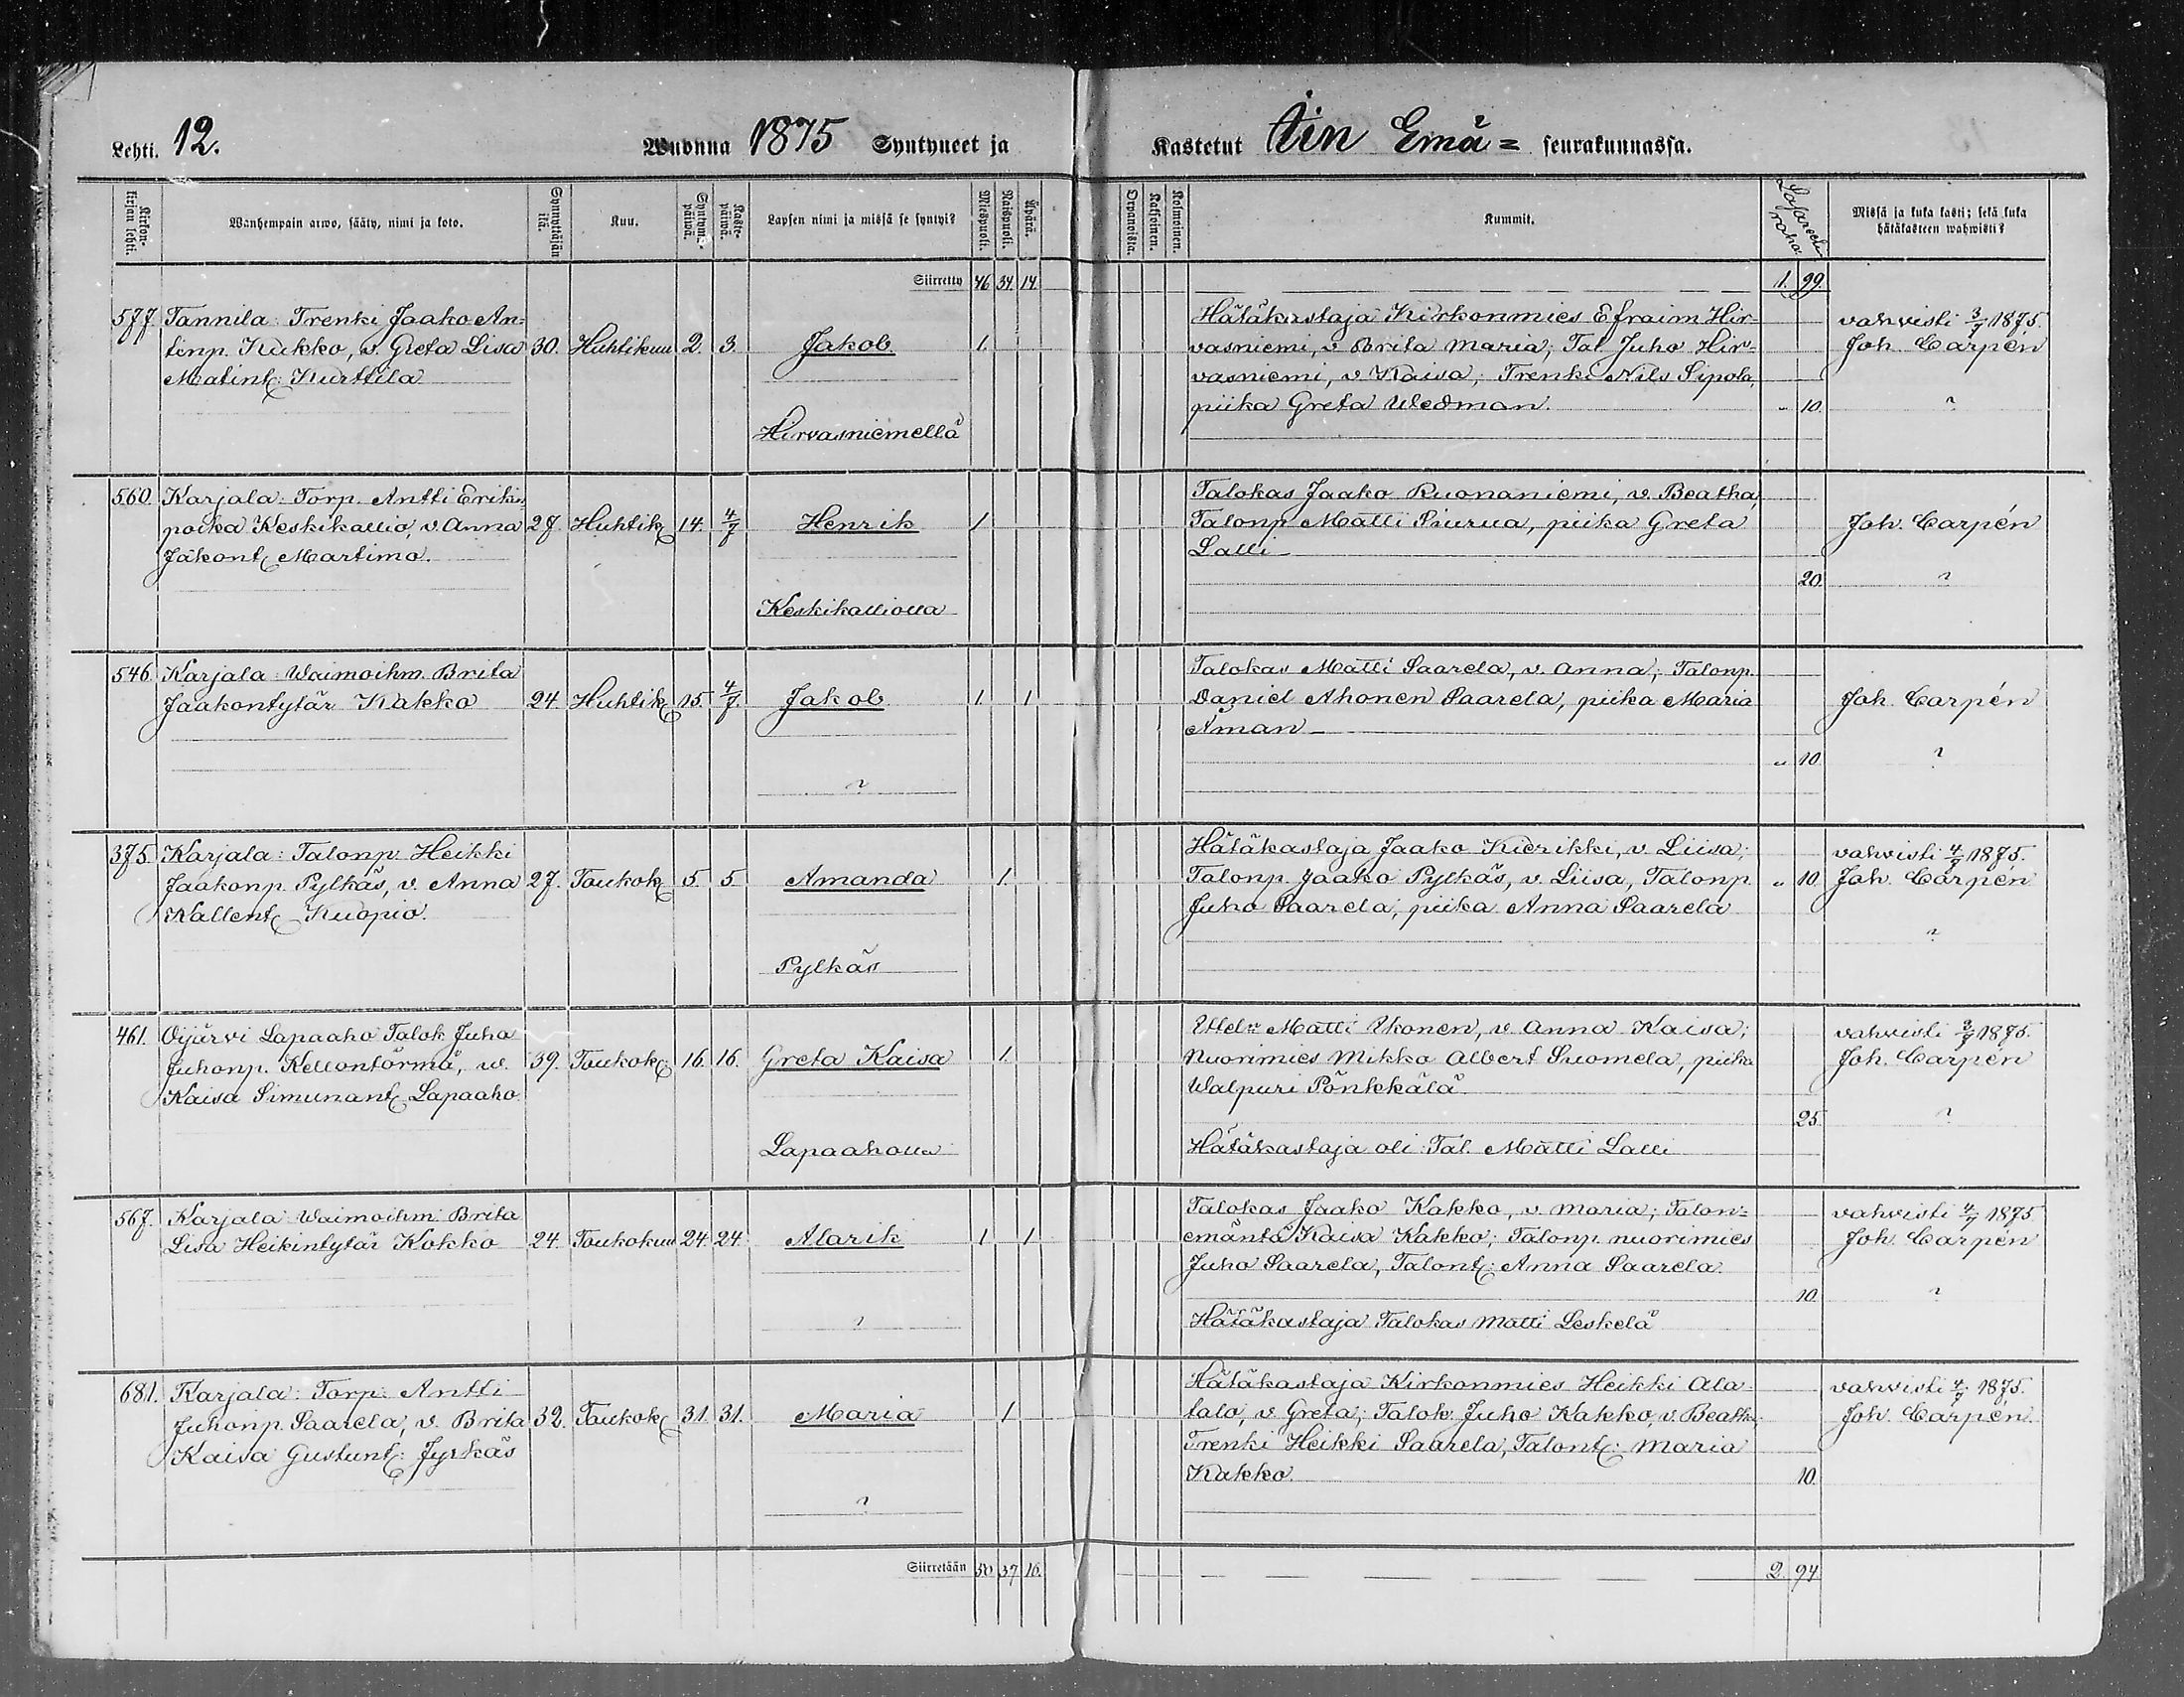 Lehti. 12. Wuonna 1875 Syntyneet ja Kastetut Iin Emä= seurakunnassa.
Kirkon-kirjan lehti. Wanhempain arwo, sääty, nimi ja koto. Synnyttäjän ikä. Kuu. Syntym.-päiwä. Kaste-päiwä. Lapsen nimi ja missä se syntyi? Miespuoli. Naispuoli. Äpärä. Orpanoista. Kaksoinen. Kolmoinen. Kummit. Lasareti raha Missä ja kuka kasti; sekä kuka hätäkasteen wahwisti?
Siirretty 46 34. 14. 1. 99.
577. Tannila: Trenki Jaako An=
tinp. Kukko, v. Greta Lisa 30. Huhtikuu 2. 3. Jakob. 1.
Matint: Kurttila
Hirvasniemellä
Hätäkastaja Kirkonmies Efraim Hir=
vasniemi, v Brita Maria; Tal. Juho Hir=
vasniemi, v Kaisa; Trenki Nils Sipola,
piika Greta Wedman. „ 10.
vahvisti 3/7 1875.
Joh. Carpén
560. Karjala: Torp. Antti Erikin
poika Keskikallio, v. Anna 27. Huhtik: 14. 4/7 Henrik 1
Jakont: Martimo.
Keskikalliolla
Talokas Jaako Ruonaniemi, v. Beatha,
Talonp Matti Piurua, piika Greta
Lalli
20.
Joh. Carpén
546. Karjala: Waimoihm. Brita
Jaakontytär Kakko 24 Huhtik: 15. 4/7. Jakob 1. 1
Talokas Matti Saarela, v. Anna; Talonp.
Daniel Ahonen Saarela, piika Maria
Åman
„ 10.
Joh. Carpén
375. Karjala: Talonp Heikki
Jaakonp. Pylkäs, v. Anna 27. Toukok: 5. 5 Amanda 1.
Kallent: Kuopio.
Pylkäs
Hätäkastaja Jaako Kierikki, v. Liisa;
Talonp. Jaako Pylkäs, v. Liisa, Talonp. „ 10.
Juho Saarela, piika Anna Saarela
vahvisti 4/7 1875.
Joh. Carpén
461. Oijärvi Lapaaho Talok Juho
Juhonp. Kellontörmä, w. 39. Toukok: 16. 16. Greta Kaisa 1.
Kaisa Simunant: Lapaaho.
Lapaaholla
Matti Ukonen, v. Anna Kaisa;
Nuorimies Mikko Albert Suomela, piika
Walpuri Pönkkälä.
25.
Hätäkastaja oli Tal. Matti Lalli
vahvisti 3/7 1875.
Joh. Carpén
567. Karjala: Waimoihm: Brita
Lisa Heikintytär Kokko 24. Toukokuu 24. 24. Alarik 1 1
Talokas Jaako Kakko, v. Maria; Talon=
emäntä Kaisa Kakko; Talonp. nuorimies
Juho Saarela, Talont: Anna Saarela.
10.
Hätäkastaja Talokas Matti Leskelä
vahvisti 4/7 1875
Joh. Carpén
681. Karjala: Torp: Antti
Juhonp. Saarela, v. Brita 32. Toukok: 31. 31. Maria 1
Kaisa Gustunt: Jyrkäs
Hätäkastaja Kirkonmies Heikki Ala-
talo, v. Greta; Talok. Juho Kakko, v. Beatha,
Trenki Heikki Saarela, Talont: Maria
Kakko. 10.
vahvisti 4/7 1875.
Joh. Carpén.
Siirretään 50 37 16. 2. 94